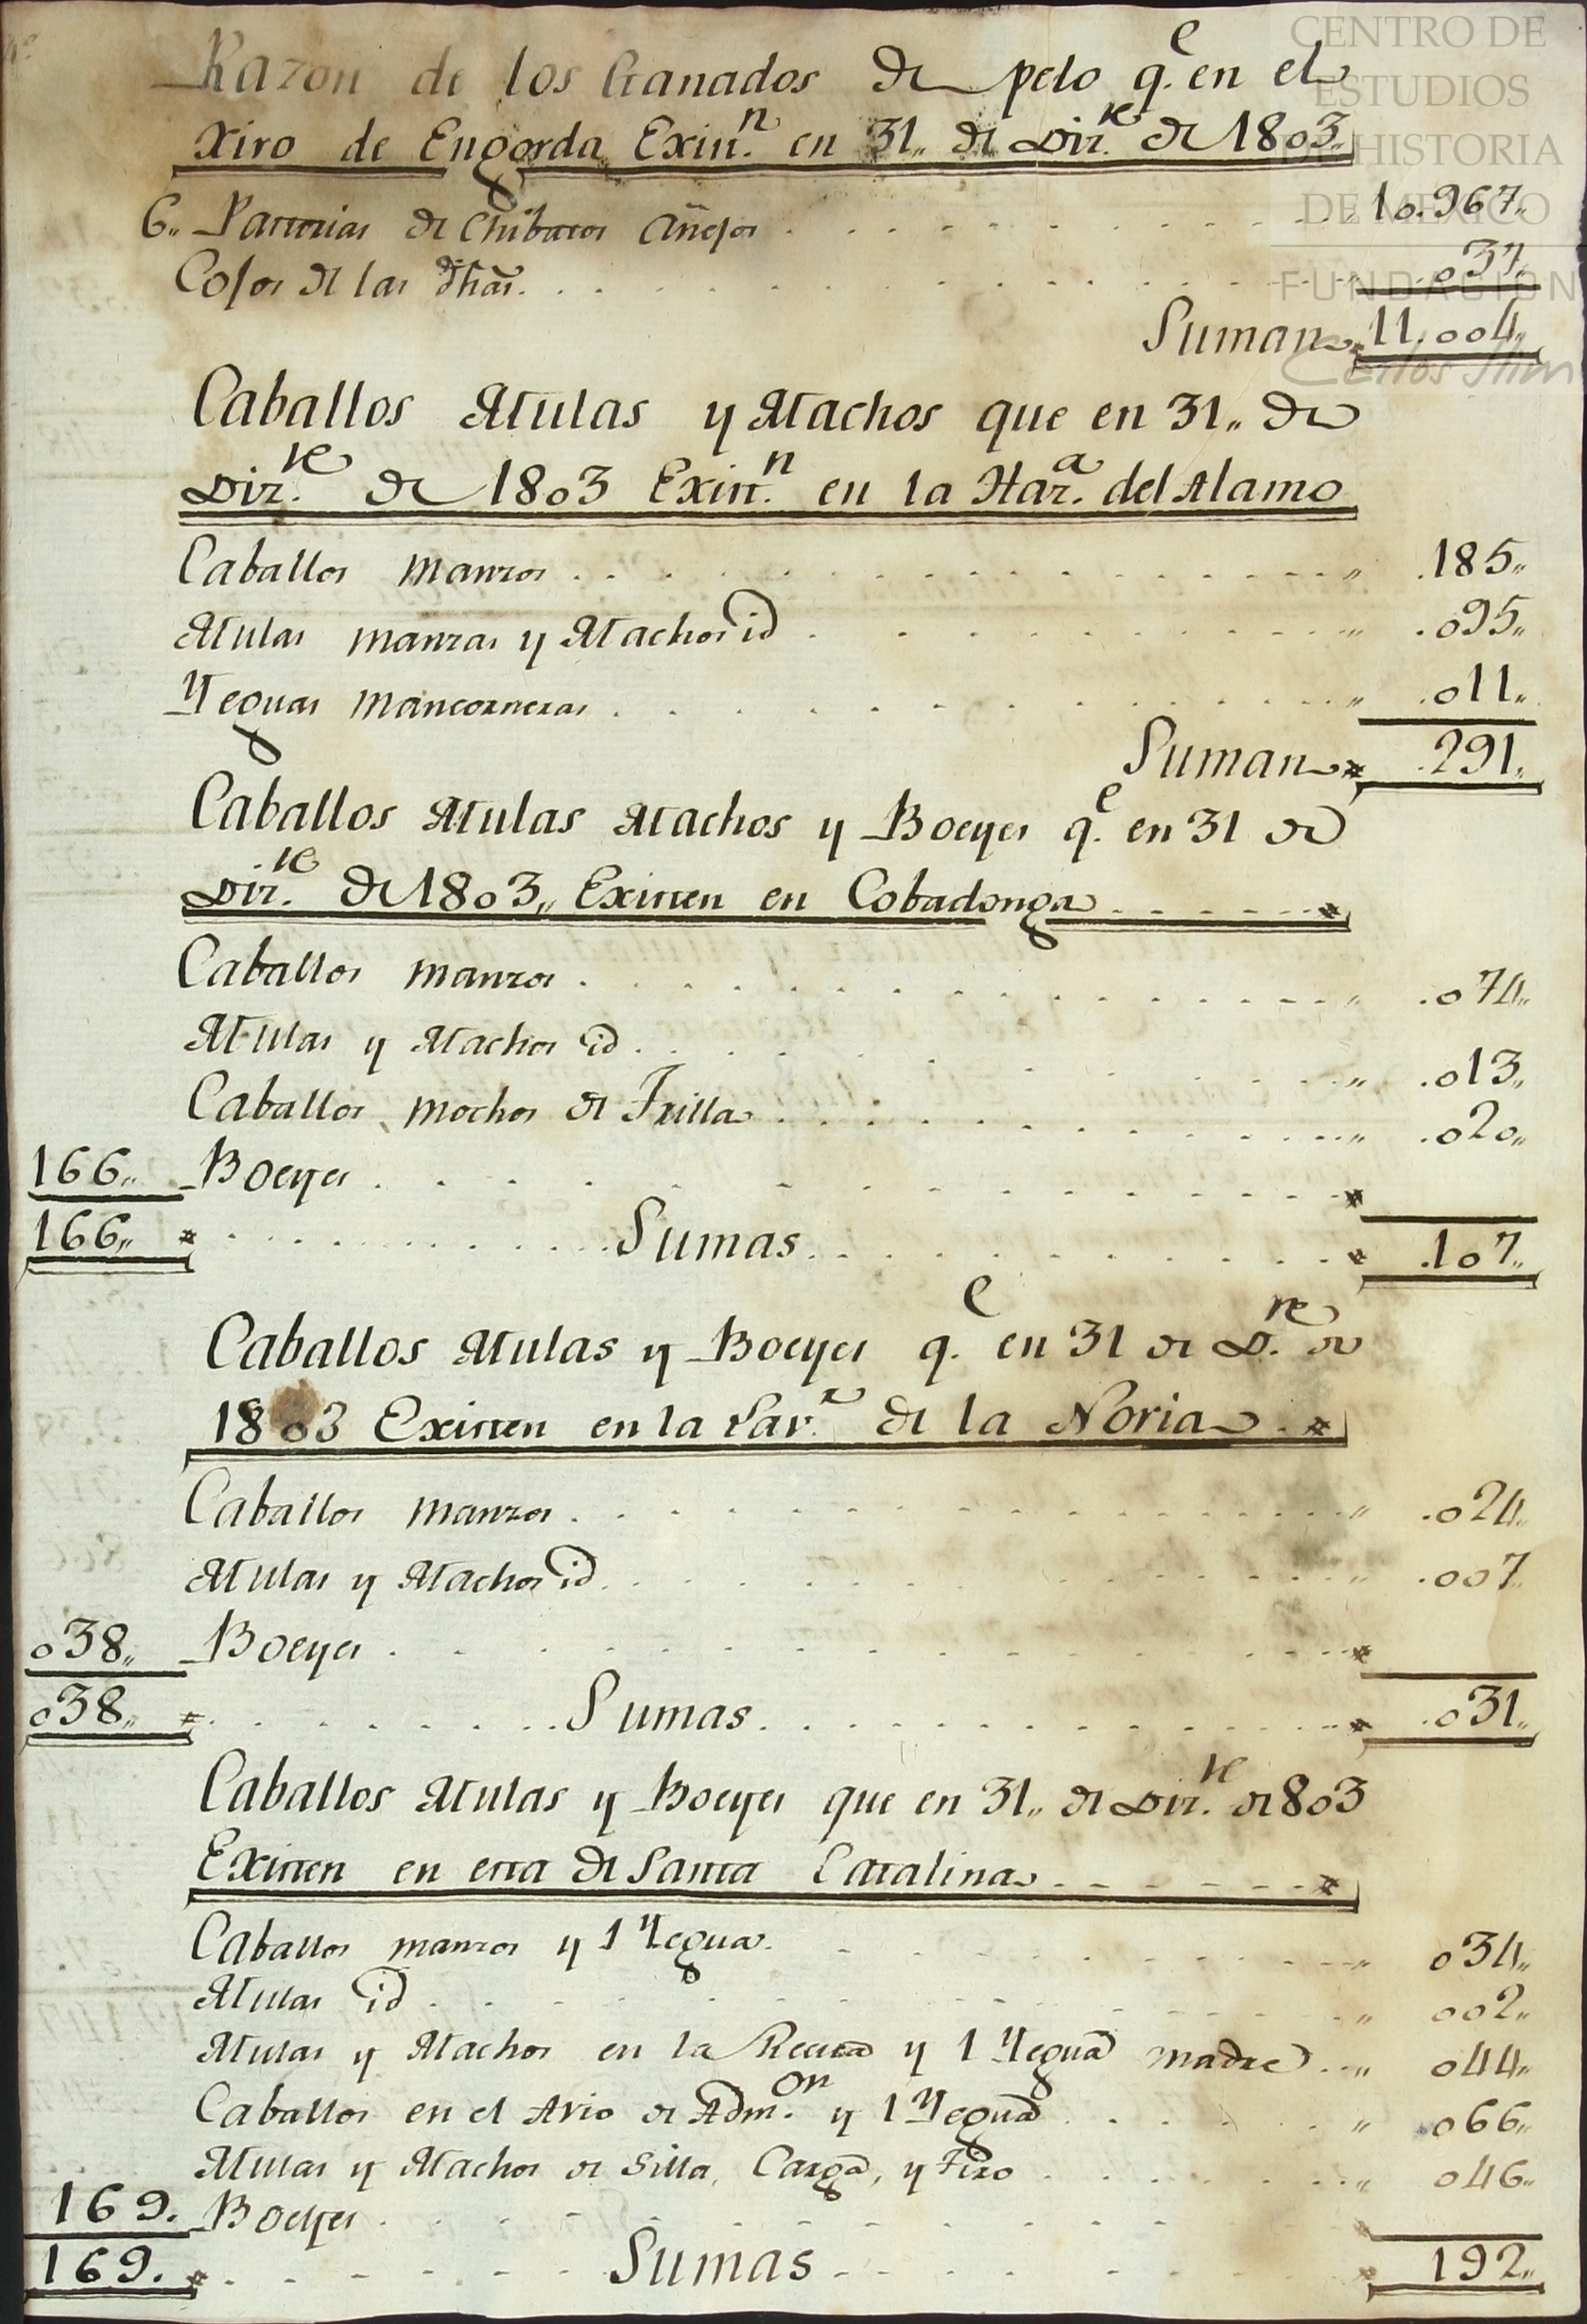 CENTRO DE
ESTUDIOS
DE HISTORIA
DE MEXICO
FUNDACIÓN
Carlos Slim
Razon de los Ganados de pelo q.e en el
Xiro de Engorda Exis.n en 31,, de Diz.re de 1803,,
6,, Partorias de Chibatos Añejos . . . . . . . . . . 10.967,,
Cojos de las dhãs. . . . . . . . . . . . . . 037,,
Suman 11.004,,
Caballos Mulas y Machos que en 31,, de
Diz.re de 1803 Exist.n en la Haz.a del Alamo
Caballos manzos . . . . . . . . . . . . . . . ,, .185,,
Mulas manzas y Machos id . . . . . . . . . . . ,, .095,,
Yeguas mancorneras . . . . . . . . . . . . ,, .011,,
Suman .291,,
Caballos Mulas Machos y Boeyes q.e en 31 de
Diz.re de 1803,, Existen en Cobadonga - - - - - -
Caballos manzos . . . . . . . . . . . . . . . ,, .074,,
Mulas y Machos id . . . . . . . . . . . ,, .013,,
Caballos mochos de Trilla . . . . . . . . . . . ,, .020,,
166,, Boeyes . . . . . . . . . . . . .
166,, . . . . . . . . . . . Sumas . . . . . . . . . . .107,,
Caballos Mulas y Boeyes q.e en 31 de D.re de
1803 Existen en la Lav.r de la Noria . .
Caballos manzos . . . . . . . . . . . . . . . ,, .024,,
Mulas y Machos id . . . . . . . . . . . . ,, .007,,
038,, Boeyes . . . . . . . . . . . . .
038,, . . . . . . . . Sumas . . . . . . . . . . . . .031,,
Caballos Mulas y Boeyes que en 31,, de Diz.re de 803
Existen en esta de Santa Catalina - - - - - -
Caballos manzos y 1 Yegua . . . . . . . . . . ,, 034,,
Mulas id . . . . . . . . . . . . . . ,, 002,,
Mulas y Machos en la Recua y 1 Yegua madre . . ,, 044,,
Caballos en el Avio de Adm.on y 1 Yegua . . . . . ,, 066,,
Mulas y Machos de Silla, Carga, y Tiro . . . . . . . ,, 046,,
169. Boeyes . . . . . . . . . . . .
169. . . . . . . . Sumas . . . . . . . . 192,,